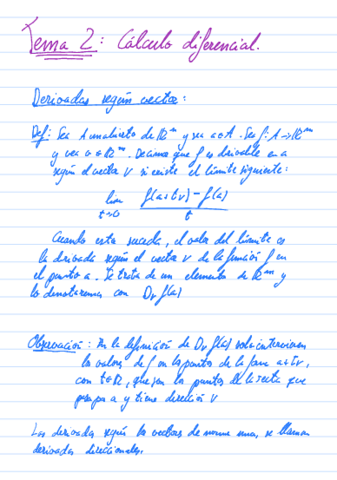 Tema 2: Cálculo diferencial.
Derivadas según vector:
Def: Sea A un abierto de ℝⁿ y sea a∈A. Sea f: A→ℝᵐ
y sea v ∈ ℝⁿ. Decimos que f es derivable en a
según el vector v si existe el límite siguiente:
lim t→0 f(a+tv) - f(a) / t
Cuando esto suceda, el valor del límite es
la derivada según el vector v de la función f en
el punto a. Se trata de un elemento de ℝᵐ y
lo denotaremos con Dᵥf(a)
Observación: En la definición de Dᵥf(a) solo intervienen
los valores de f en los puntos de la forma a+tv,
con t∈ℝ, que son los puntos de la recta que
pasa por a y tiene dirección v
Las derivadas según los vectores de norma uno, se llaman
derivadas direccionales.